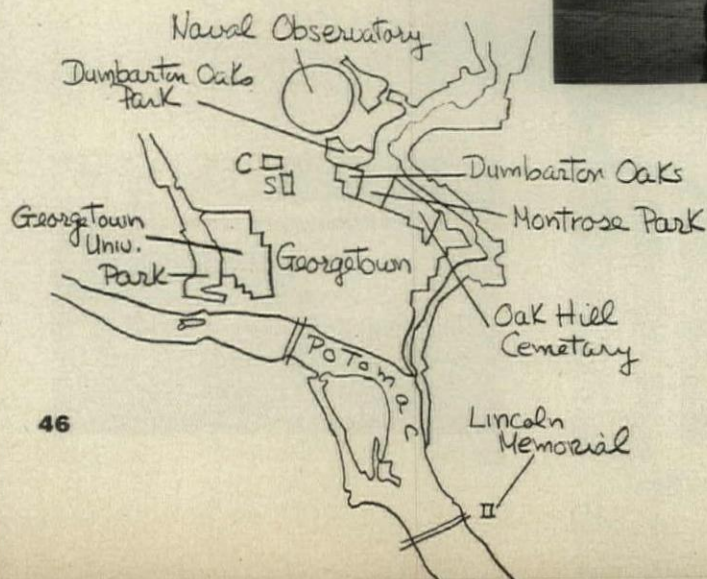 Naval Observatory
Dumbarton Oaks
Park
C
S
Dumbarton Oaks
Montrose Park
Georgetown
Univ.
Park
Georgetown
Oak Hill
Cemetary
Potomac
46
Lincoln
Memorial